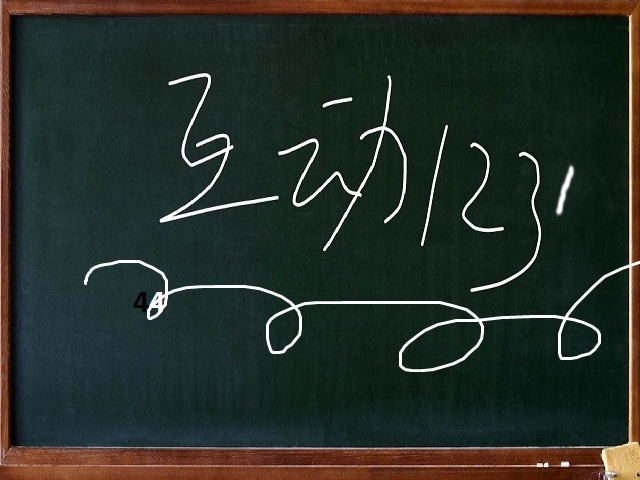 互动123
44